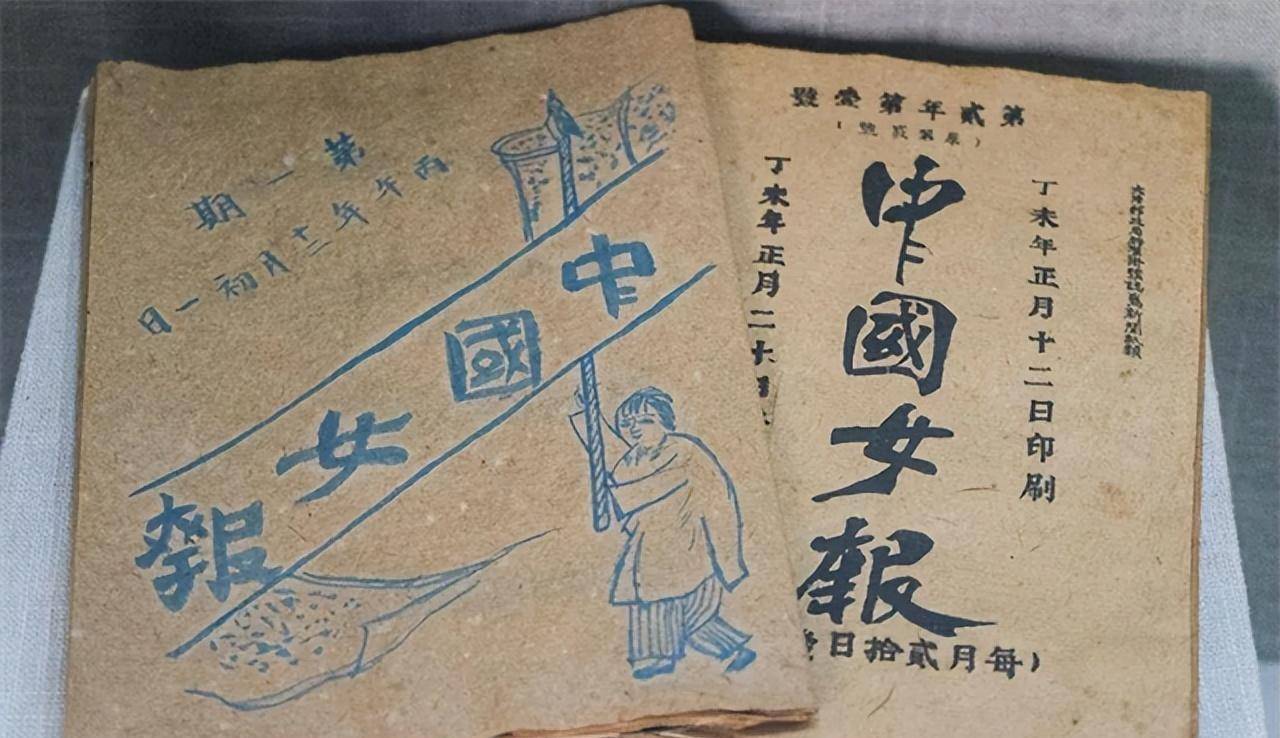 第一期
丙午年十二月初一日
中國女報
第貳年第壹號
(原第貳號)
丁未年正月十二日印刷
中國女報
丁未年正月二十
(每月貳拾日